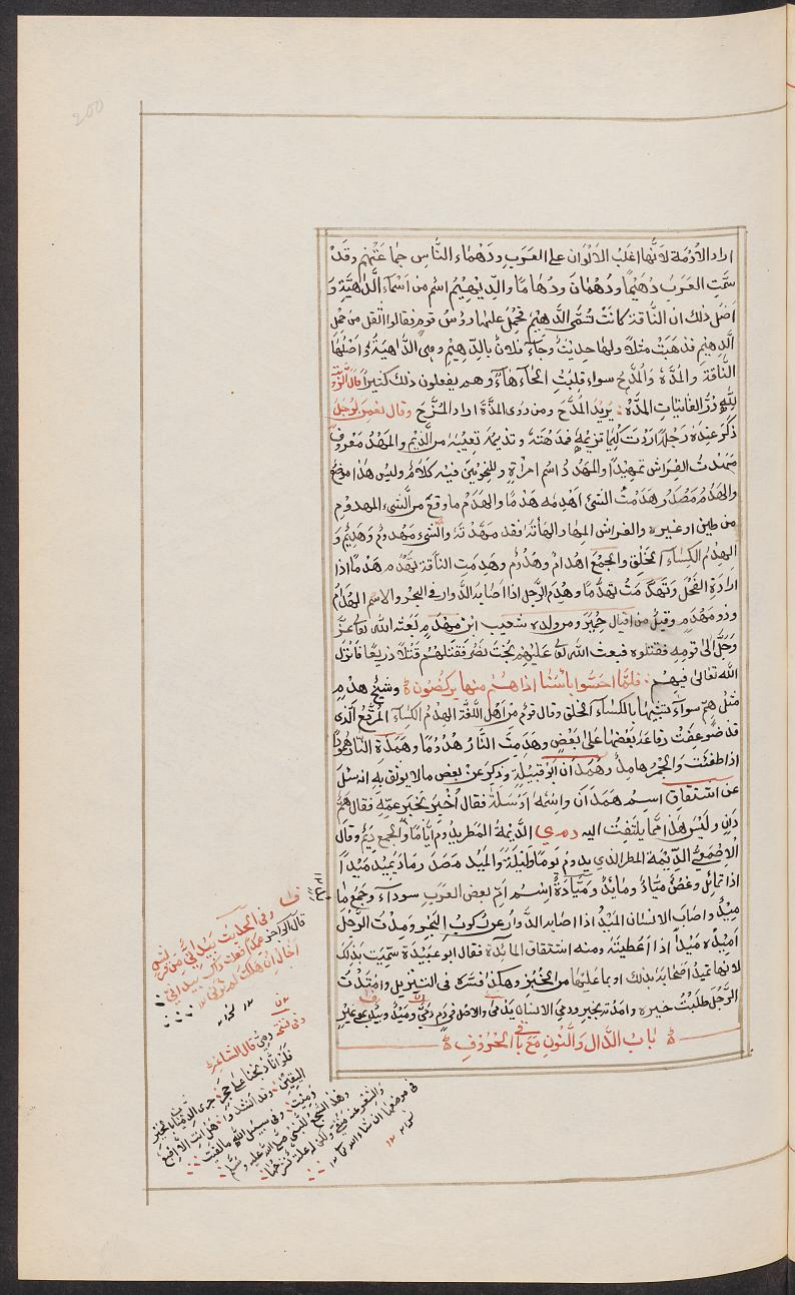 اراد الأدمة لأنها اغلب الألوان على العرب ودهماء الناس جماعتهم وقد
سمّت العرب دُهَيما ودُهمان ودهاما والدهيم اسم من اسماء الداهية و
اصل ذلك ان الناقة كانت تسمّى الدهيم فحمل عليها رؤس قوم فقالوا اثقل من حمل
الدهيم فذهبت مثلا ولها حديث وجاء فلان بالدهيم وهى الداهية واصلها
الناقة والمدّه والمدح سواء قلبت الحاء هاء وهم يفعلون ذلك كثيرا قال رؤبة
لله درّ الغانيات المدّه يريد المدّح ومن روى المدّة اراد المزّح وقال بعض لرجل
ذكر عنده رجلا اردت كيما تذيمه فمدهته وتذيمه تعيبه من الذيم والمهد معروف
مهدت الفراش تمهيدا والمهدد اسم امرأة وللنحويين فيه كلام وليس هذا موضع
والهدم مصدر هدمت الشئ اهدمه هدما والهدم ما وقع من الشيء المهدوم
من طين او غيره والفراش المهاد الهأته فقد مهّدته والشىء مهدوم وهديم و
الهدم الكساء الخلق والجمع اهدام وهدوم وهدمت الناقة تهدم هدما اذا
ارادة الفحل وتهدّمت تهدّما وهدم الرجل اذا اصابه الدوار فى البحر والاسم الهدام
وذو مهدم وقيل من اقيال حمير ومن ولده شعيب ابن مهدم بعثه الله تعا عزّ
وجلّ الى قومه فقتلوه فبعث الله تعا عليهم بخت نصر فقتلهم قتلا ذريعا فانزل
الله تعالى فيهم فلما احسوا بأسنا اذا هم منها يركضون وشيخ هدم
مثل هم سواء تشبيها بالكساء الخلق وقال قوم من اهل اللغة الهدم الكساء المرقع الذى
قد ضوعفت رقاعه بعضها على بعض وهمدت النار همودا وهمدة النار همودا
اذا طفئت والجمر هامد وهمدان ابو قبيلة وذكر عن بعض ما لا يوثق به انه سئل
عن اشتقاق اسم همدان واسمه اوسلة فقال اخبر بخبر عمّه فقال هم
دان وليس هذا مما يلتفت اليه دمى الديمة المطر يدوم اياما والجمع ديم وقال
الاصمعى الديمة المطر الذى يدوم يوما وليلة والميد مصدر ماد يميد ميدا
اذا تمايل وغصن ميّاد ومايد وميّادة اسم ام بعض العرب سوداء وجمع ما
ميد واصاب الانسان الميد اذا اصابه الدوار عن ركوب البحر ومدت الرجل
اميده ميدا اذا اعطيته ومنه اشتقاق المائدة فقال ابو عبيدة سميت بذلك
لانها تميد اصحابها بذلك او بما عليها من الخبز وهكذا فسّره فى التنزيل وامتدت
الرجل طلبت خيره وامدته بخير ودمى الانسان يدمى والاصل فى دم دمى
باب الدال والنون مع باقى الحروف
وفى الحديث بيد انى من قريش
وفى نسخة ودمى قال الشاعر
فلو انا ذبحنا على حجر جرى الدميان بالخبر
اليقين وقد انشدوا هل انت الا اصبع
دميت وفى سبيل الله ما لقيت
وهذا السجع للنبى صلى الله عليه وسلم
فى موضعها ان شاء الله تعا